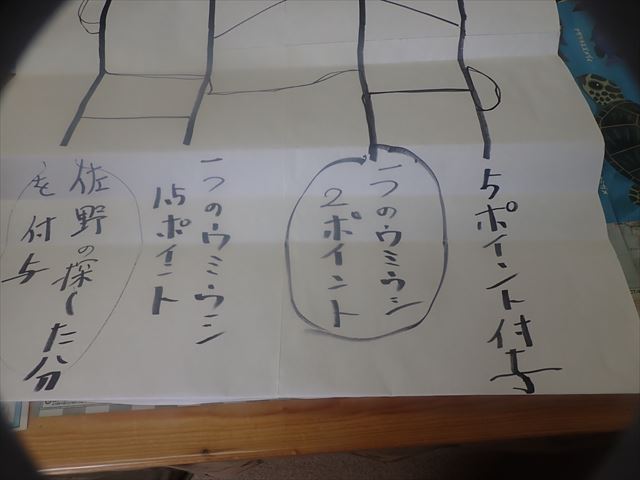 5ポイント付与
一つのウミウシ
2ポイント
一つのウミウシ
1.5ポイント
佐野の探した分
を付与